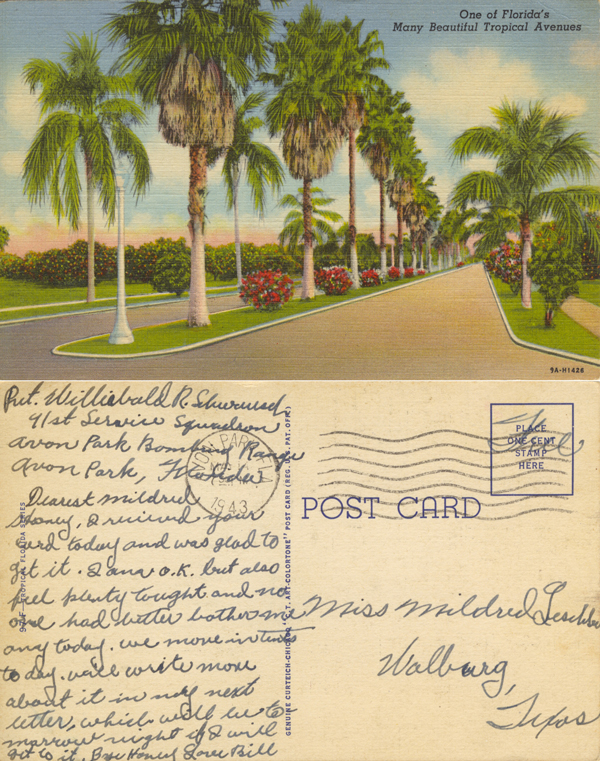 One of Florida's
Many Beautiful Tropical Avenues
9A-H1426
Pvt. Willibald R.
91st Service Squadron
Avon Park Bombing Range
Avon Park, Florida
Dearest Mildred
Honey, I recived your
card today and was glad to
get it. I am o.k. but also
feel plenty tought and no
one had better bother me
any today. we move in tents
to day. will write more
about it in my next
letter, which will be to
marrow night if I will
get to it. Bye Honey Love Bill
TROPICAL FLORIDA SERIES
AVON PARK
1943
GENUINE CURTEICH-CHICAGO "C.T. ART-COLORTONE" POST CARD (REG. U.S. PAT. OFF.)
Free
PLACE
ONE CENT
STAMP
HERE
POST CARD
Miss Mildred
Walburg,
Texas